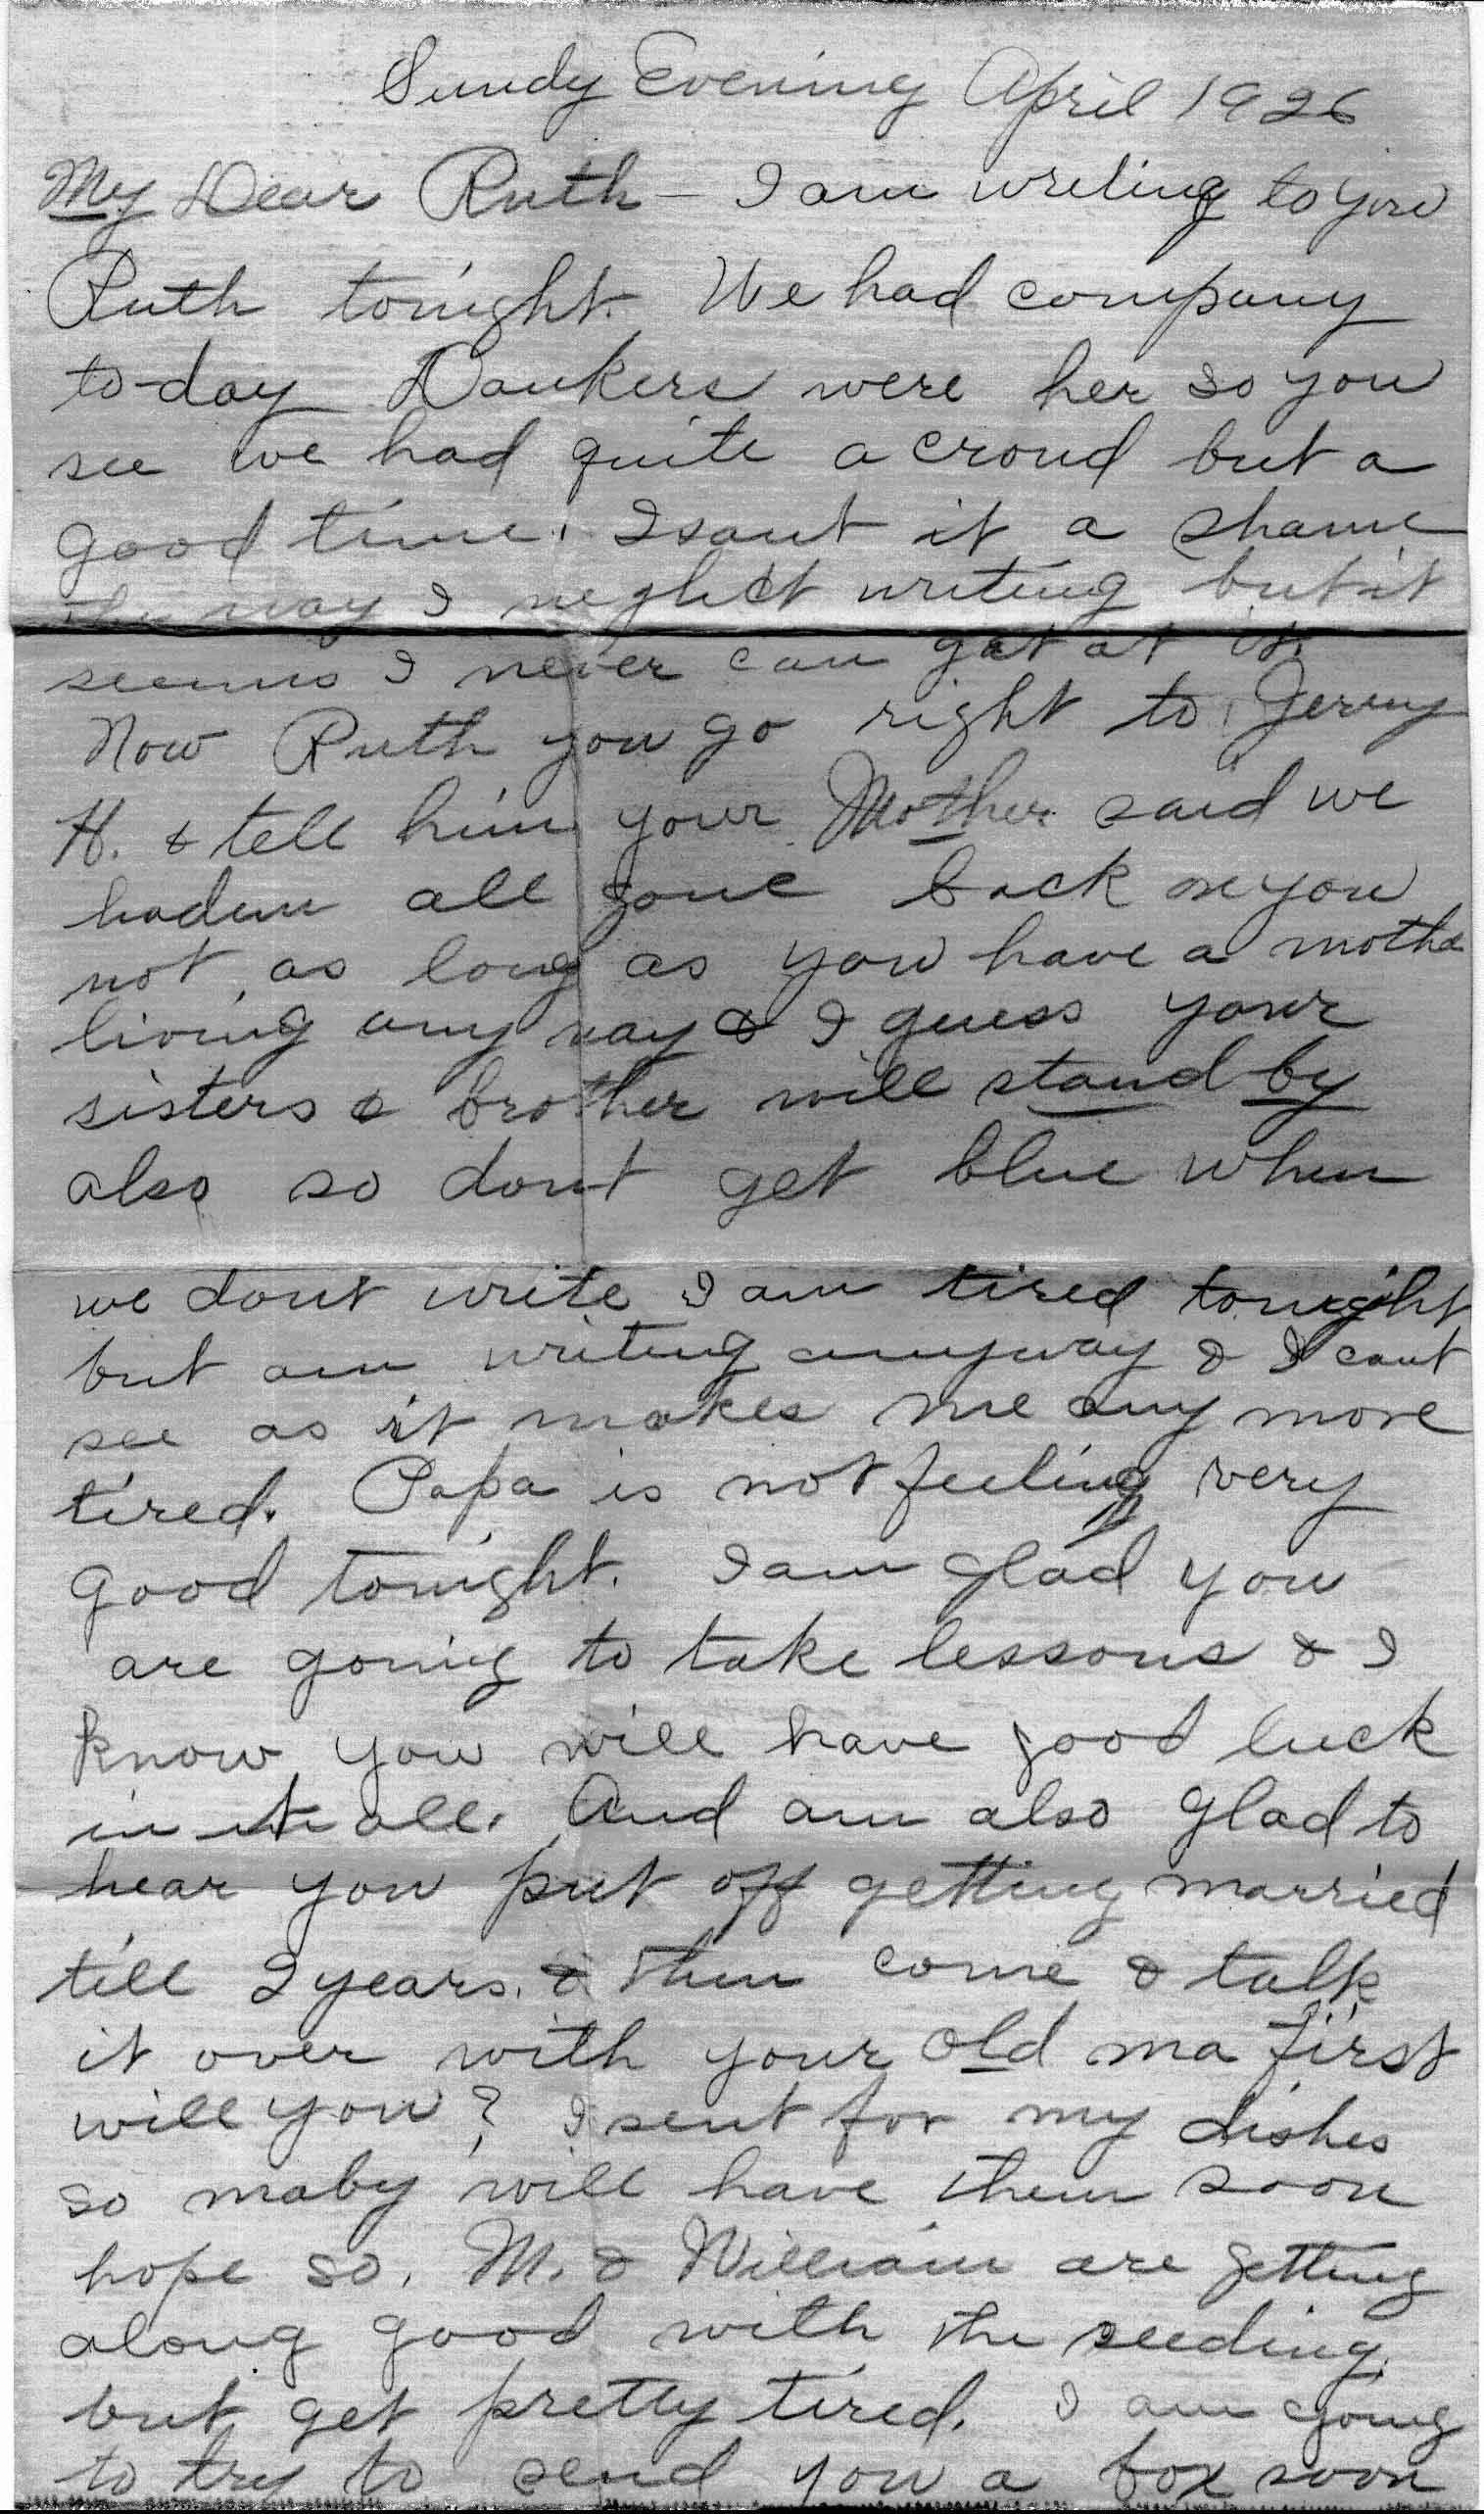 Sundy Evening April 1926
My Dear Ruth - I am writing to you
Ruth tonight. We had company
to-day Dankers were her so you
see we had quite a croud but a
good time. Isant it a shame
the way I neglict writing but it
seems I never can get at it.
Now Ruth you go right to Jerry
H. & tell him your Mother said we
hadnn all gone back on you
not as long as you have a mother
living any way & I guess your
sisters & brother will stand by
also so dont get blue when
we dont write I am tired tonight
but am writing anyway & I cant
see as it makes me any more
tired. Papa is not feeling very
good tonight. I am glad you
are going to take lessons & I
know you will have good luck
in it all. And am also glad to
hear you put off getting married
till 2 years. & then come & talk
it over with your old ma first
will you? I sent for my dishes
so maby will have them soon
hope so. M. & William are getting
along good with the seeding
but get pretty tired. I am going
to try to send you a box soon